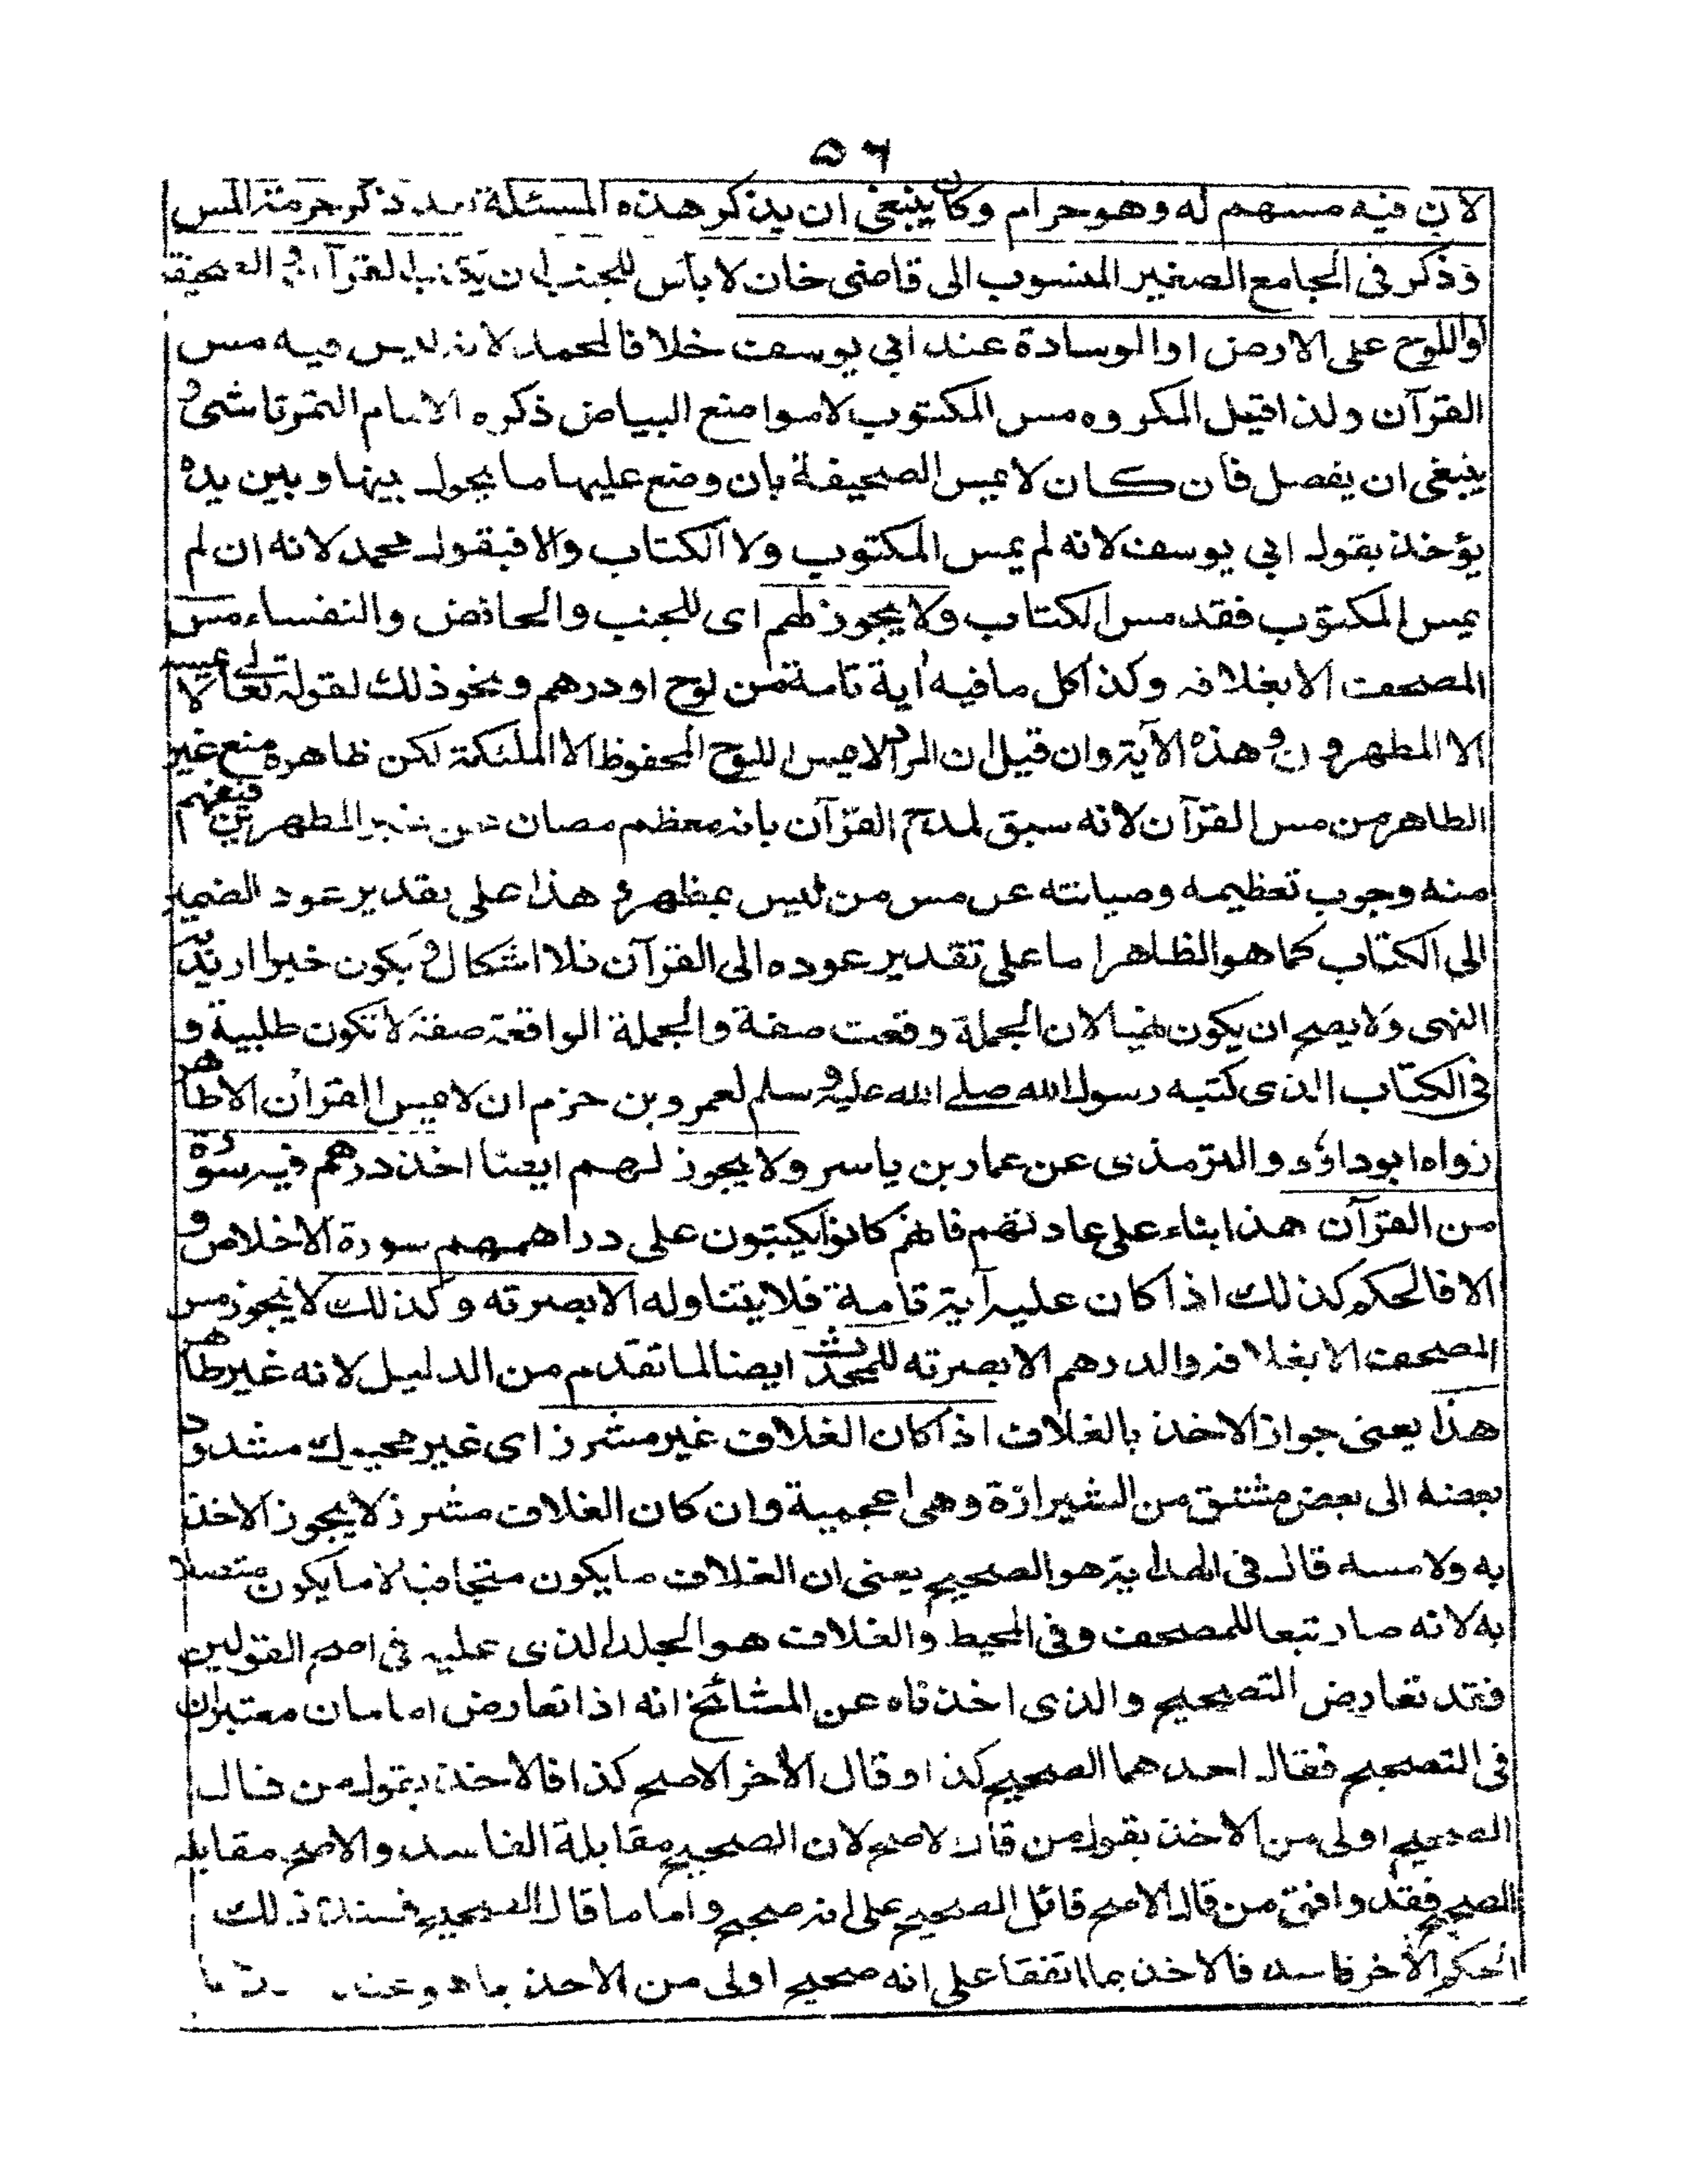 ٥٦
لان فيه مسهم له وهو حرام وكان ينبغى ان يذكر هذه المسئلة بعد ذكر حرمة المس
وذكر فى الجامع الصغير المنسوب الى قاضى خان لا بأس للجنب ان يكتب القرآن و الصحيفة
او اللوح على الارض او الوسادة عند ابي يوسف خلافا لمحمد لانه ليس فيه مس
القرآن ولذا قيل المكروه مس المكتوب لا مواضع البياض ذكره الامام التمرتاشى و
ينبغى ان يفصل فان كان لا يمس الصحيفة بان وضع عليها ما يحول بينها وبين يده
يؤخذ بقول ابي يوسف لانه لم يمس المكتوب ولا الكتاب والا فبقول محمد لانه ان لم
يمس المكتوب فقد مس الكتاب ولا يجوز لهم اى للجنب والحائض والنفساء مس
المصحف الا بغلافه وكذا كل ما فيه آية تامة من لوح او درهم ونحو ذلك لقوله تعالى لا يمسه
الا المطهرون وهذه الآية وان قيل ان المراد لا يمس اللوح المحفوظ الا الملئكة لكن ظاهره منع غير
الطاهر من مس القرآن لانه سبق لمدح القرآن بانه معظم مصان عن غير المطهرين فيفهم
منه وجوب تعظيمه وصيانته عن مس من ليس بمطهر و هذا على تقدير عود الضمير
الى الكتاب كما هو الظاهر اما على تقدير عوده الى القرآن فلا اشكال و يكون خبرا اريد به
النهى ولا يصح ان يكون نهيا لان الجملة وقعت صفة والجملة الواقعة صفة لا تكون طلبية و
فى الكتاب الذى كتبه رسول الله صلى الله عليه وسلم لعمرو بن حزم ان لا يمس القرآن الا طاهر
رواه ابو داؤد والترمذى عن عمار بن ياسر ولا يجوز لهم ايضا اخذ درهم فيه سورة
من القرآن هذا بناء على عادتهم فانهم كانوا يكتبون على دراهمهم سورة الاخلاص و
الا فالحكم كذلك اذا كان عليه آية تامة فلا يتناوله الا بصرته وكذلك لا يجوز مس
المصحف الا بغلافه والدرهم الا بصرته للمحدث ايضا لما تقدم من الدليل لانه غير طاهر
هذا يعنى جواز الاخذ بالغلاف اذا كان الغلاف غير مشرز اى غير محبوك مشدود
بعضه الى بعض مشتق من الشيرازة وهى اعجمية وان كان الغلاف مشرز لا يجوز الاخذ
به ولا مسه قال فى الهداية هو الصحيح يعنى ان الغلاف ما يكون متجافيا لا ما يكون متصلا
به لانه صار تبعا للمصحف وفى المحيط والغلاف هو الجلد الذى عليه فى اصح القولين
فقد تعارض التصحيح والذى اخذناه عن المشائخ انه اذا تعارض امامان معتبران
فى التصحيح فقال احدهما الصحيح كذا وقال الآخر الاصح كذا فالاخذ بقول من قال
الصحيح اولى من الاخذ بقول من قال الاصح لان الصحيح مقابلة الفاسد والاصح مقابله
الصحيح فقد وافق من قال الاصح قائل الصحيح على انه صحيح واما ما قال الصحيح فعنده ذلك
الحكم الآخر فاسد فالاخذ بما اتفقا على انه صحيح اولى من الاخذ بما هو عند